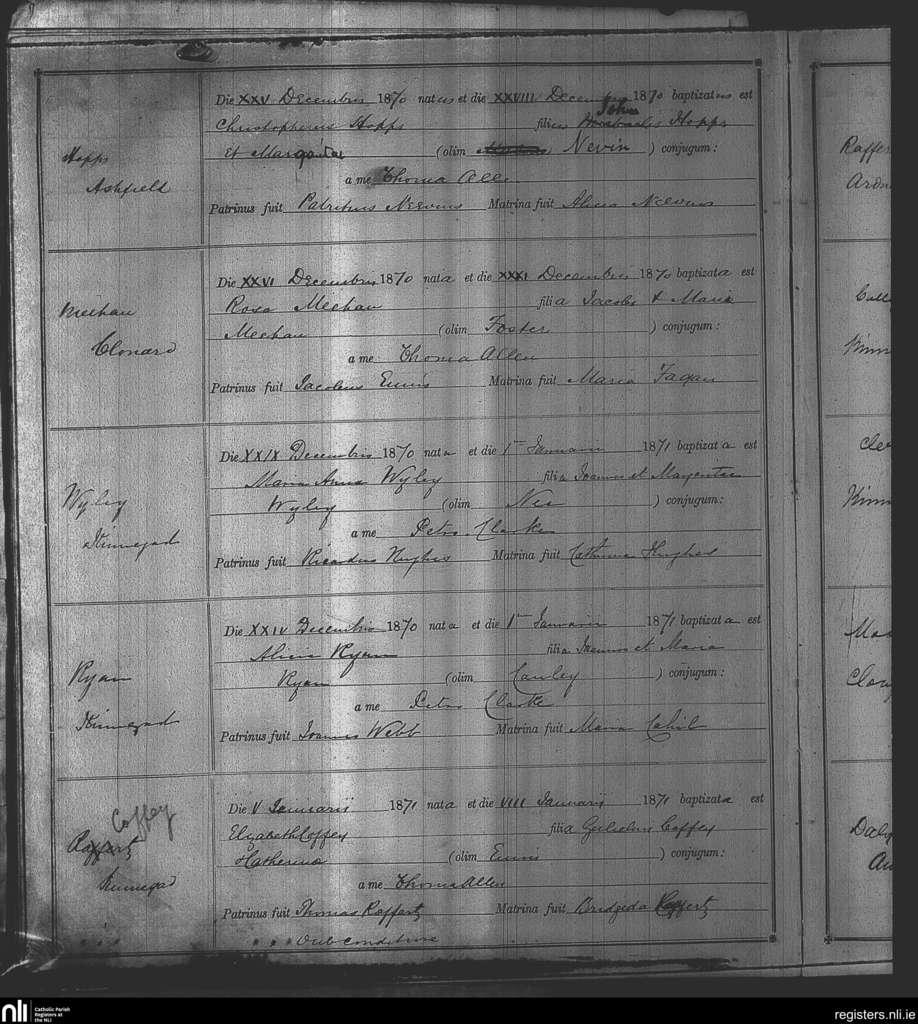 Hopps
Ashfield
Die XXV Decembris 1870 natus et die XXVIII Decembris 1870 baptizatus est
Christopherus Hopps filius John Hopps
Et Margaritae (olim Nevin) conjugum:
a me Thoma Allen
Patrinus fuit Patritius Neevins Matrina fuit Alicia Neevins
Meehan
Clonard
Die XXVI Decembris 1870 nata et die XXXI Decembris 1870 baptizata est
Rosa Meehan filia Jacobi & Maria
Meehan (olim Foster) conjugum:
a me Thoma Allen
Patrinus fuit Jacobus Ennis Matrina fuit Maria Fagan
Wyley
Kinnegad
Die XXIX Decembris 1870 nata et die 1 Januarii 1871 baptizata est
Maria Anna Wyley filia Joannes et Margarita
Wyley (olim) conjugum:
a me Petro Clarke
Patrinus fuit Ricardus Hughes Matrina fuit Catherina Hughes
Ryan
Kinnegad
Die XXIV Decembris 1870 nata et die 1 Januarii 1871 baptizata est
Alicia Ryan filia Joannes et Maria
Ryan (olim Cauley) conjugum:
a me Petro Clarke
Patrinus fuit Joannes Webb Matrina fuit Maria Cahil
Coffey
Raffert
Kinnegad
Die V Januarii 1871 nata et die VIII Januarii 1871 baptizata est
Elyzabeth Coffey filia Gulielmi Coffey
Katherina (olim Ennis) conjugum:
a me Thoma Allen
Patrinus fuit Thomas Rafferty Matrina fuit Bridgeda Rafferty
Sub conditione
Raffer
Ardn
Cull
Kinn
Cle
Kinn
Clon
Daly
nli
Catholic Parish
Registers at
the NLI
registers.nli.ie